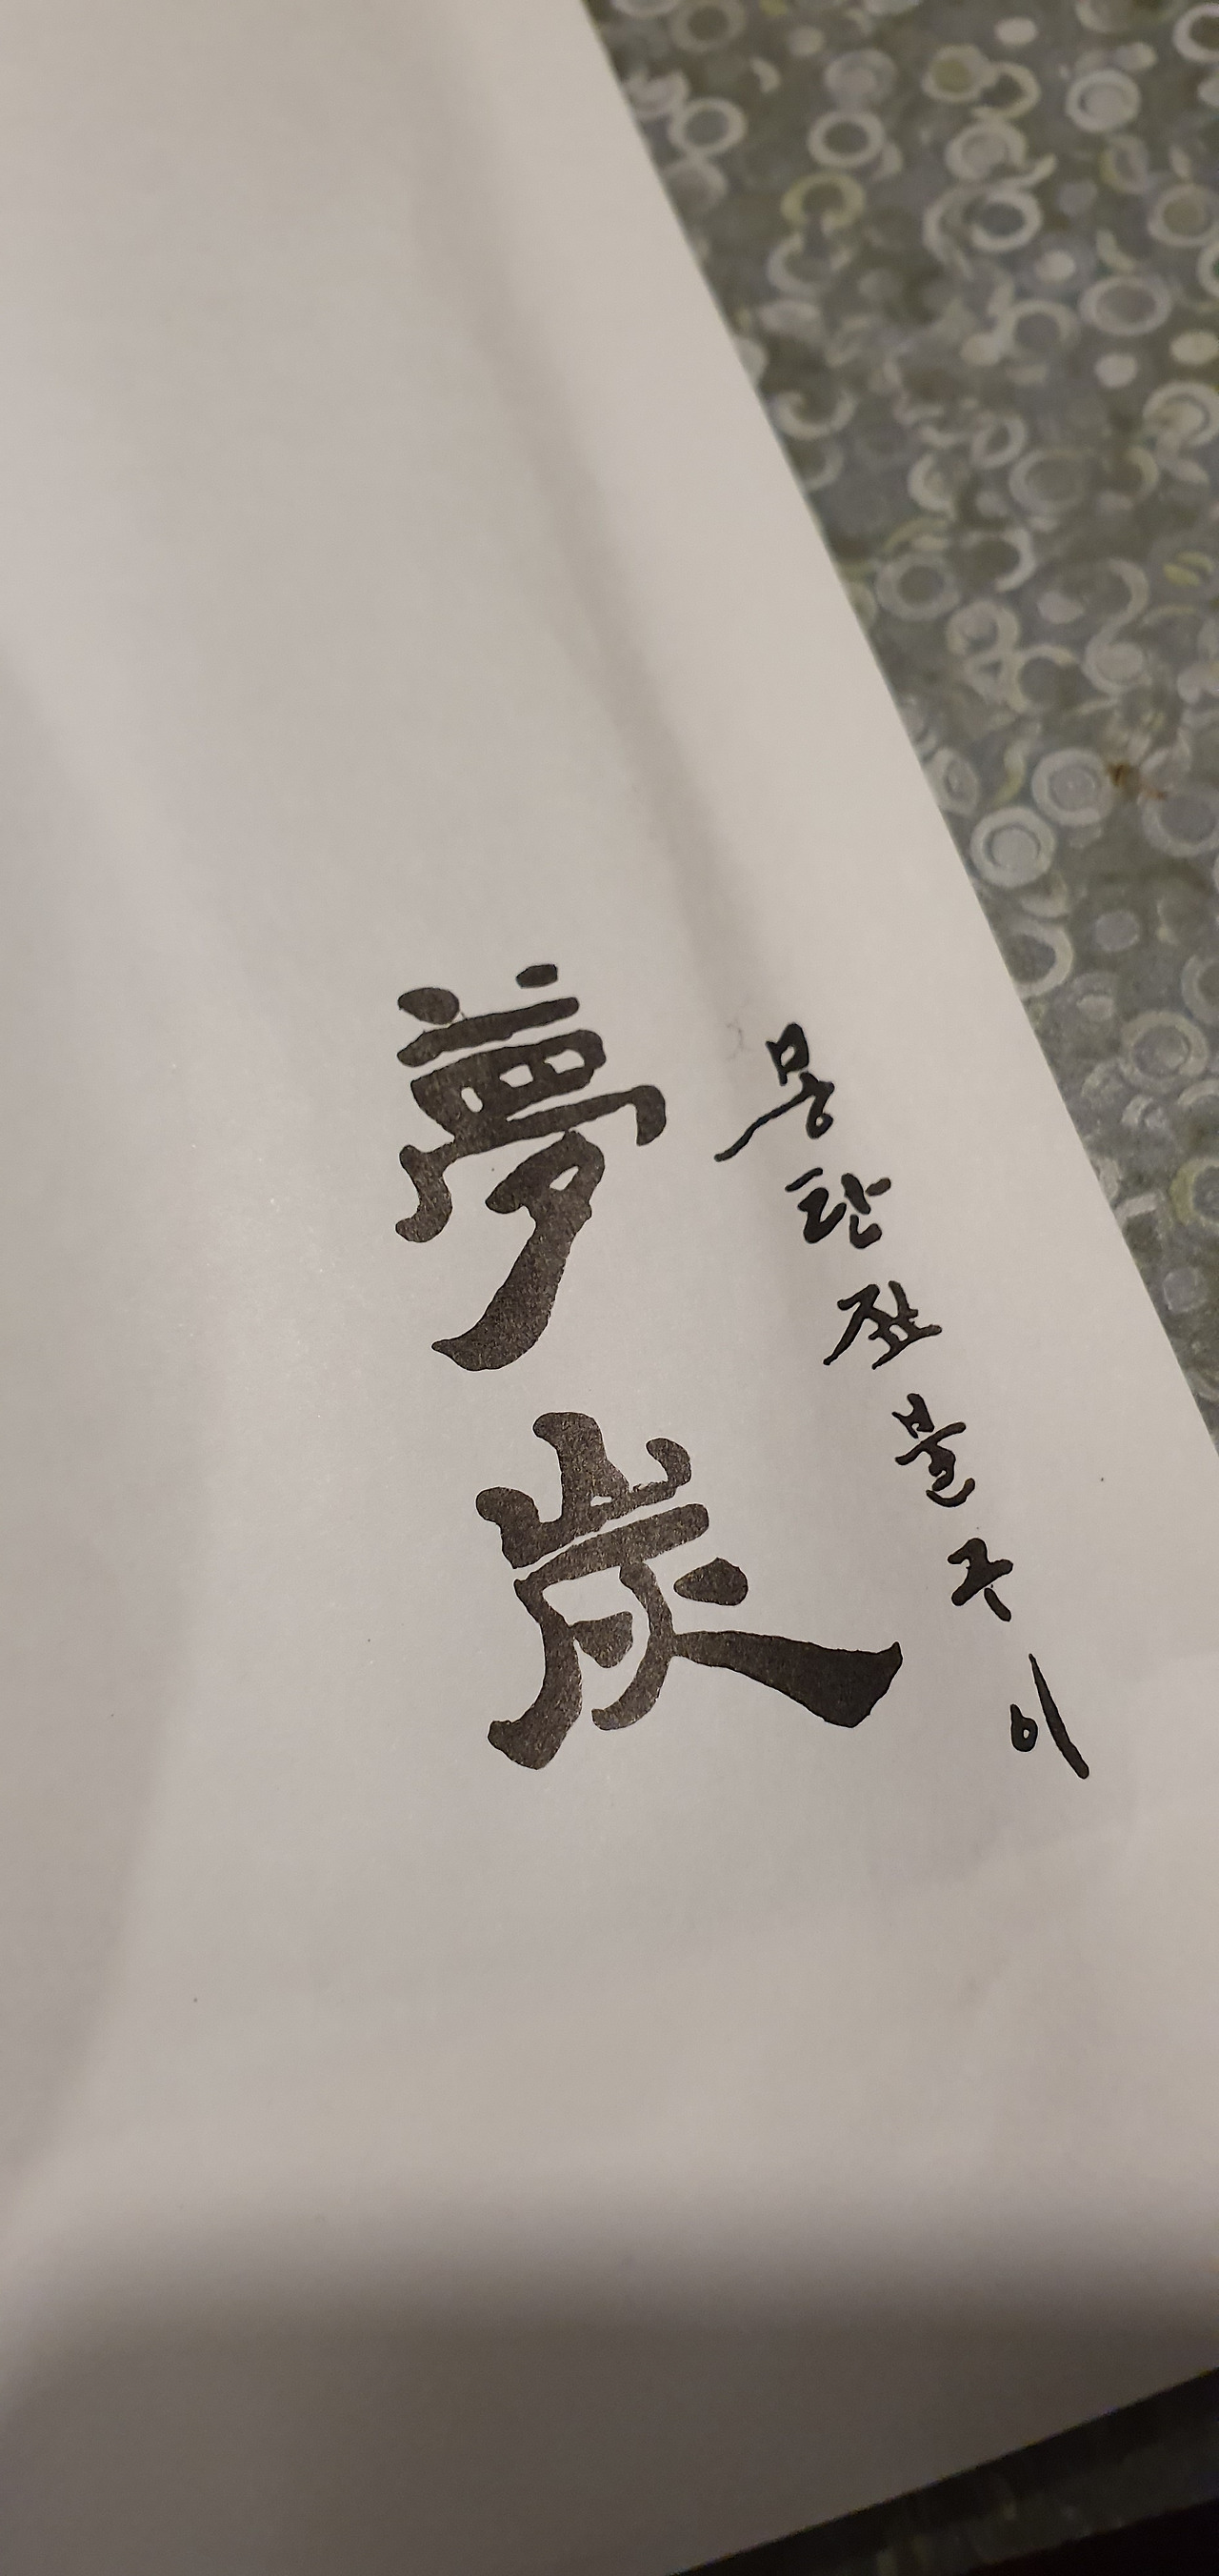 몽탄짚불구이
夢炭